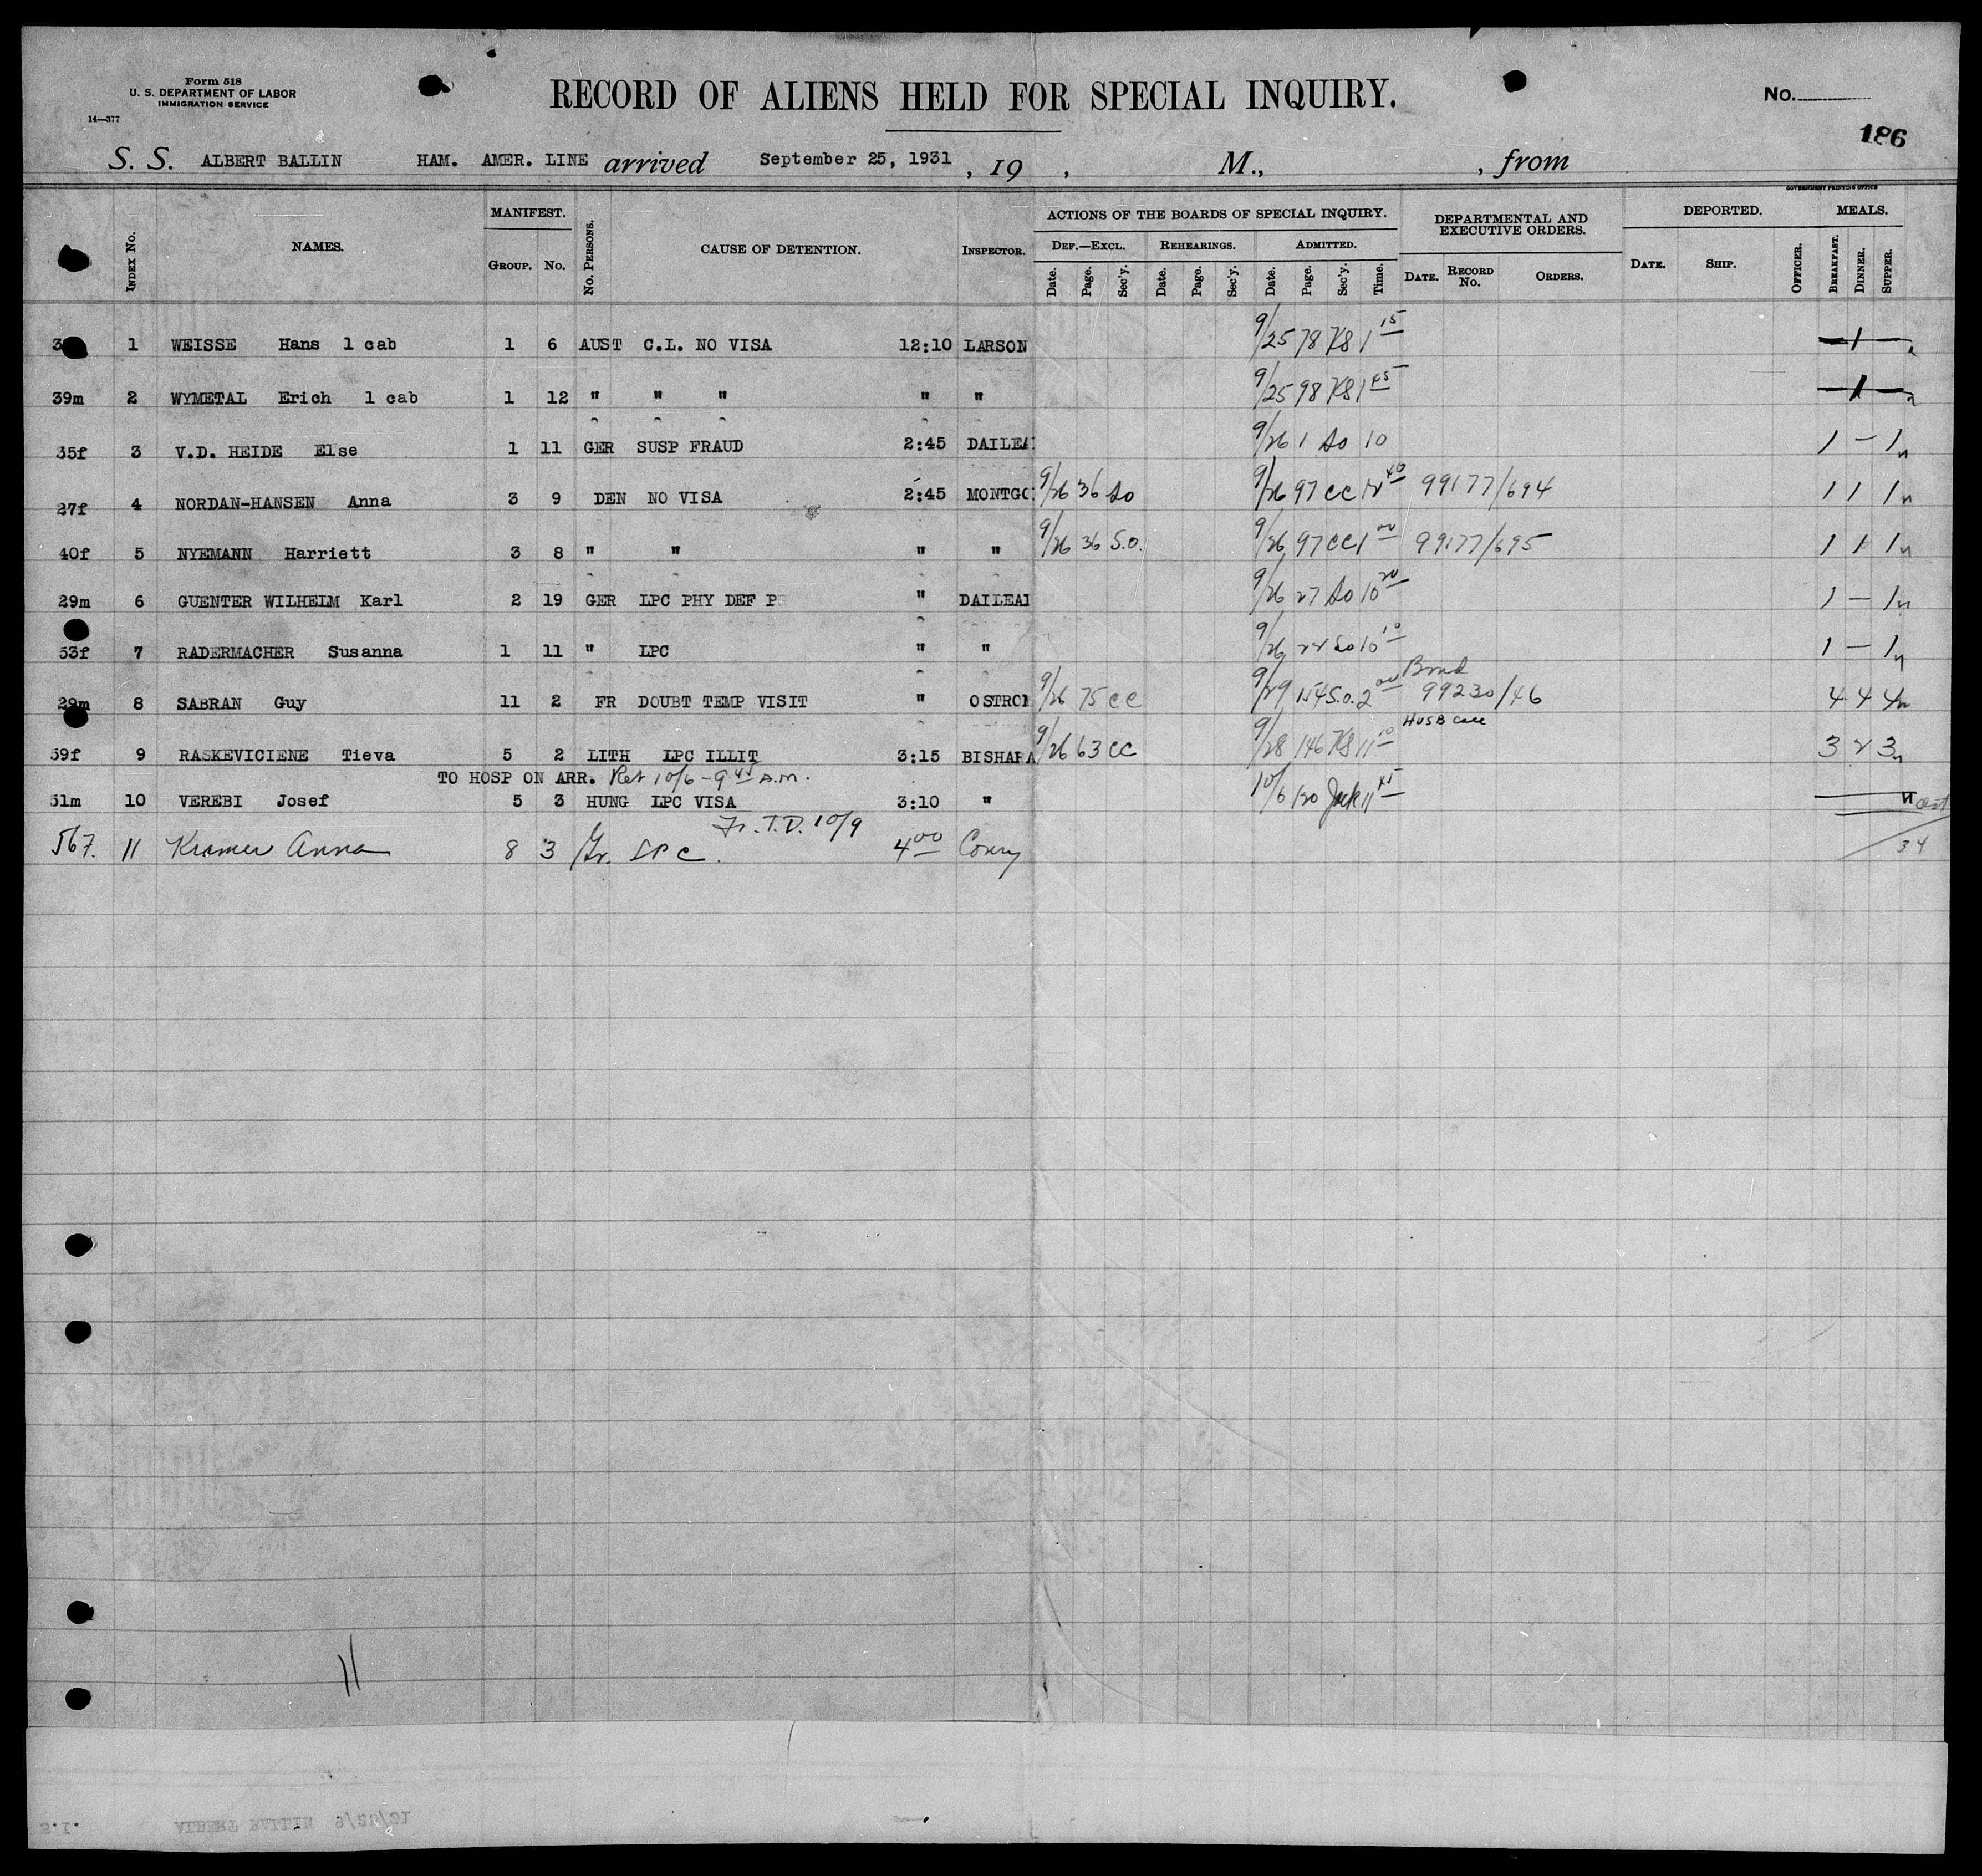 Form 518
U. S. DEPARTMENT OF LABOR
IMMIGRATION SERVICE
14—377
RECORD OF ALIENS HELD FOR SPECIAL INQUIRY.
No.
186
S. S. ALBERT BALLIN HAM. AMER. LINE arrived September 25, 1931 , 19 , M., , from
GOVERNMENT PRINTING OFFICE
INDEX No. NAMES. MANIFEST. GROUP. No. No. PERSONS. CAUSE OF DETENTION. INSPECTOR. ACTIONS OF THE BOARDS OF SPECIAL INQUIRY. DEPARTMENTAL AND EXECUTIVE ORDERS. DEPORTED. MEALS.
DEF.—EXCL. REHEARINGS. ADMITTED.
Date. Page. Sec'y. Date. Page. Sec'y. Date. Page. Sec'y. Time. DATE. RECORD No. ORDERS. DATE. SHIP. OFFICER. BREAKFAST. DINNER. SUPPER.
1 WEISSE Hans 1 cab 1 6 AUST C.L. NO VISA 12:10 LARSON 9/25 78 KS 1 15 — 1 —
39m 2 WYMETAL Erich 1 cab 1 12 " " " " " 9/25 98 KS 1 45 — 1 —
35f 3 V.D. HEIDE Else 1 11 GER SUSP FRAUD 2:45 DAILEA 9/26 1 So 10 1 — 1
27f 4 NORDAN-HANSEN Anna 3 9 DEN NO VISA 2:45 MONTGO 9/26 36 So 9/26 97 CC 12 40 99177/694 1 1 1
40f 5 NYEMANN Harriett 3 8 " " " " 9/26 36 S.O. 9/26 97 CC 1 00 99177/695 1 1 1
29m 6 GUENTER WILHELM Karl 2 19 GER LPC PHY DEF P " DAILEA 9/26 27 So 10 20 1 — 1
53f 7 RADERMACHER Susanna 1 11 " LPC " " 9/26 24 So 10 10 1 — 1
29m 8 SABRAN Guy 11 2 FR DOUBT TEMP VISIT " OSTRO 9/26 75 CC 9/29 154 S.O. 2 00 Bond 99230/46 4 4 4
59f 9 RASKEVICIENE Tieva 5 2 LITH LPC ILLIT 3:15 BISHARA 9/26 63 CC 9/28 146 KS 11 10 HUSB Case 3 2 3
TO HOSP ON ARR. Ret 10/6 - 9 45 A.M.
51m 10 VEREBI Josef 5 3 HUNG LPC VISA 3:10 " 10/6 120 Jck 11 45
Tr. T.D. 10/9
56f. 11 Kramer Anna 8 3 Gr. LPC. 4 00 Conry 34
11
S.I. ALBERT BALLIN 9/25/31